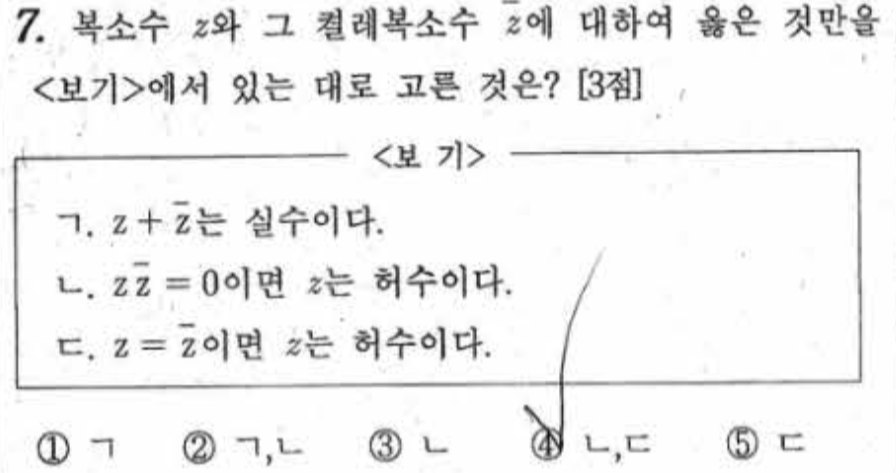 7. 복소수 z와 그 켤레복소수 z̄에 대하여 옳은 것만을
<보기>에서 있는 대로 고른 것은? [3점]
<보 기>
ㄱ. z + z̄는 실수이다.
ㄴ. zz̄ = 0이면 z는 허수이다.
ㄷ. z = z̄이면 z는 허수이다.
① ㄱ ② ㄱ,ㄴ ③ ㄴ ④ ㄴ,ㄷ ⑤ ㄷ